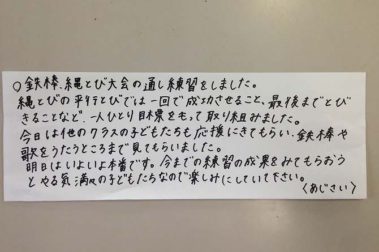 ○鉄棒、縄とび大会の通し練習をしました。
縄とびの平行とびでは一回で成功させること、最後までとび
きることなど、一人ひとり目標をもって取り組みました。
今日は他のクラスの子どもたちも応援にきてもらい、鉄棒や
歌をうたうところまで見てもらいました。
明日はいよいよ本番です。今までの練習の成果をみてもらおう
とやる気満々の子どもたちなので楽しみにしていて下さい。
〈あじさい〉